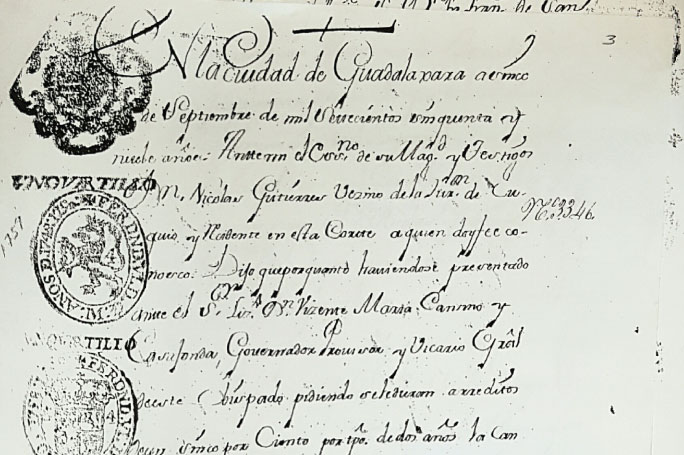 3
En la Ciudad de Guadalaxara a cinco
de Septiembre de mil Settecientos sinquenta y
nuebe años. Antte mi el Essno de su Magd y Testigos
Dn Nicolas Gutierres Vezino de la Jurisn de Cu-
quio y Residente en esta Corte a quien doy fee co-
nosco: Dijo que por quanto haviendose presentado
ante el Sr Lizdo Dn Vizente Maria
Casafonda, Governador Provisor y Vicario Gral
de este Obispado pidiendo se le dieran a rreditos
de un sinco por Ciento por tpo. de dos años la can
VNQVARTILLO
FERDND.VI.D.G.
VNQVARTILLO
No 3346
1759